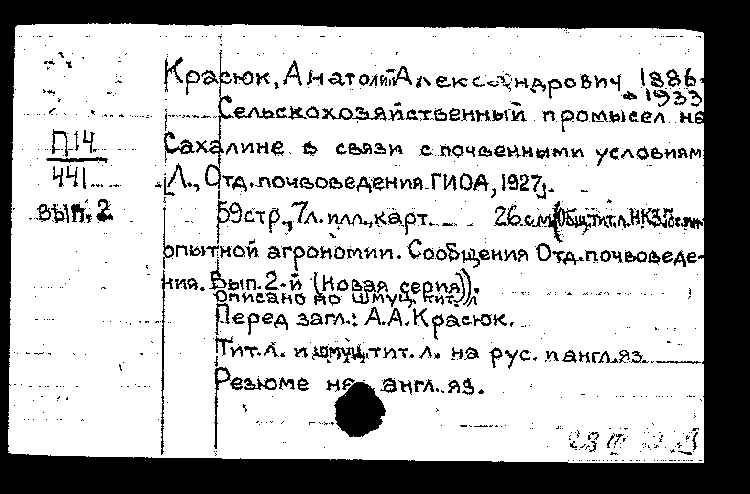 Красюк, Анатолий Александрович 1886-
1933
Сельскохозяйственный промысел на
П14
441
вып. 2
Сахалине в связи с почвенными условиям
[Л., Отд. почвоведения ГИОА, 1927].
59 стр., 7 л. илл., карт. 26 см. (Общ. тит. л. НКЗ. Гос.
опытной агрономии. Сообщения Отд. почвоведе-
ния. Вып. 2-й (Новая серия)).
Описано по шмуц. тит. л
Перед загл.: А.А. Красюк.
Тит. л. и шмуц. тит. л. на рус. и англ. яз.
Резюме на англ. яз.